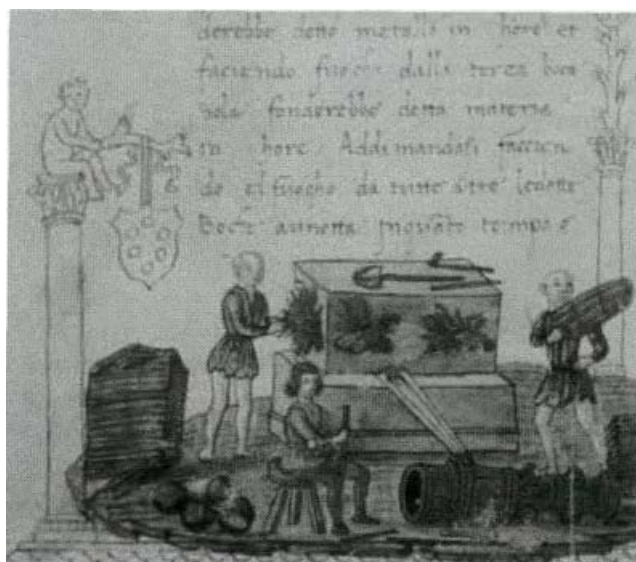 derebbe detto metallo in hore et
faciendo fuocho dalla terza boca
sola fonderebbe detta materia
in hore Addimandasi faccien
do el fuocho da tutte tre
in tempo e